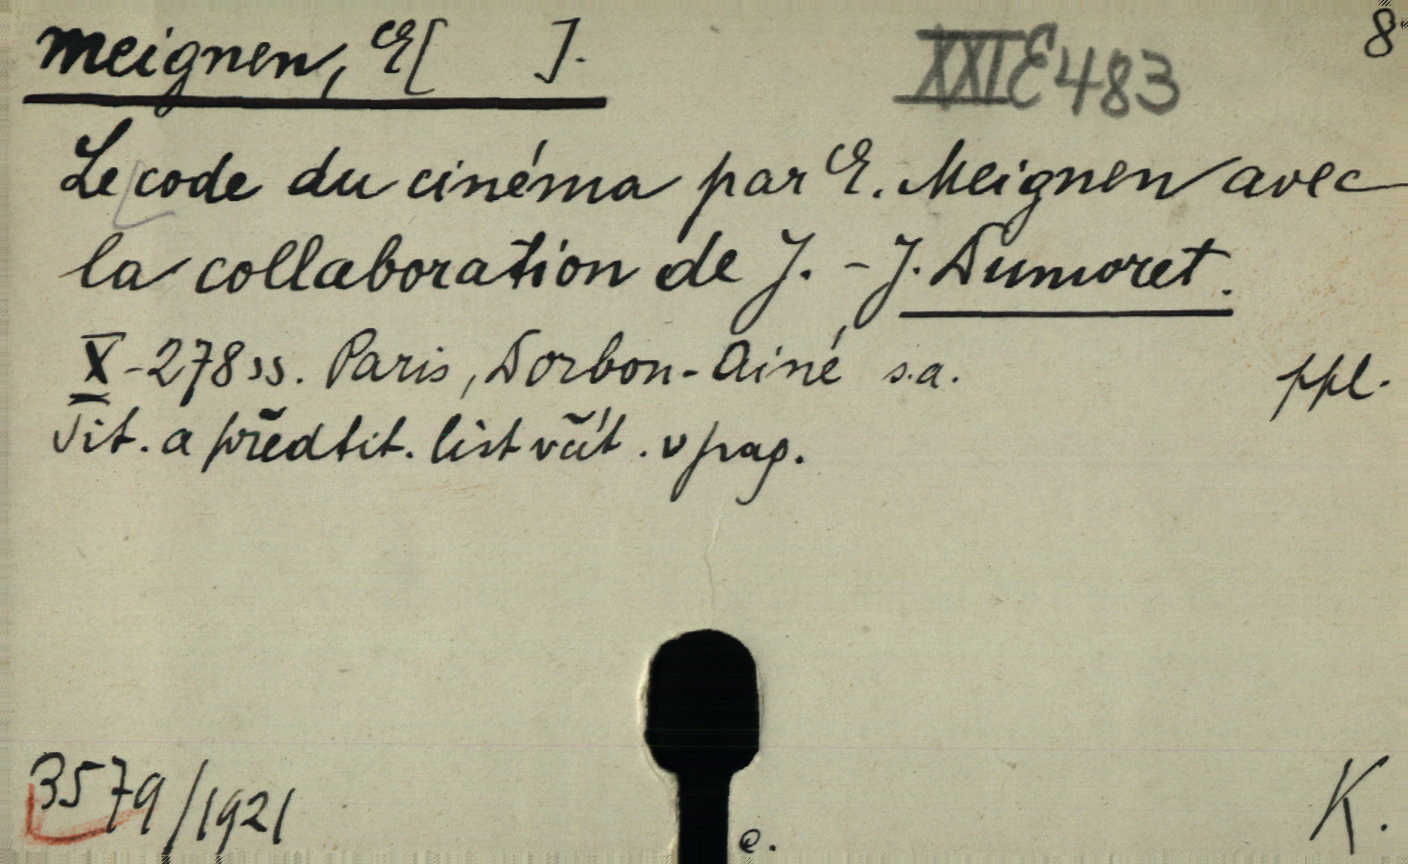 Meignen, E[ ].
XXI E 483
8°
Le code du cinéma par E. Meignen avec
la collaboration de J.-J. Dumoret.
X-278 ss. Paris, Dorbon-Ainé s.a.
ppl.
Tit. a předtit. list včít. v pag.
3579/1921
K.
e.